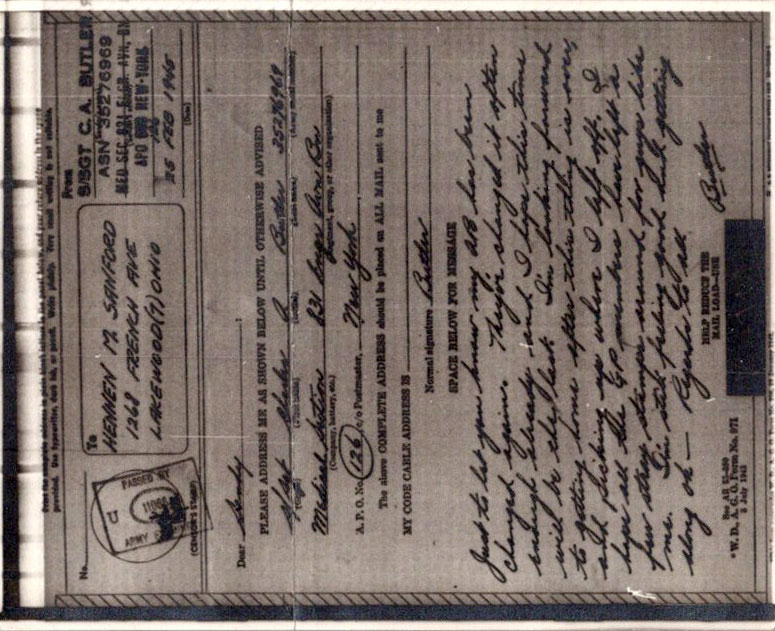 Print the complete address in plain block letters in the panel below, and your return address in the space
provided. Use typewriter, dark ink, or pencil. Write plainly. Very small writing is not suitable.
No.
To
HENNEN M. SANFORD
1268 FRENCH AVE
LAKEWOOD (7) OHIO
From
S/SGT C. A. BUTLER
ASN 35276969
MED SEC 831 ENGR. AVN. BN
APO NEW YORK
126
25 FEB 1945
(Date)
PASSED BY
U
ARMY
(CENSOR'S STAMP)
Dear Sandy :
PLEASE ADDRESS ME AS SHOWN BELOW UNTIL OTHERWISE ADVISED
S/Sgt Charles A Butler 35276969
(Army serial number)
Medical Section 831 Engr Avn Bn
(Company, battery, etc.) (Regiment, group, or other organization)
A. P. O. No. 126 c/o Postmaster, New York
The above COMPLETE ADDRESS should be placed on ALL MAIL sent to me
MY CODE CABLE ADDRESS IS
Normal signature Butler
SPACE BELOW FOR MESSAGE
Just to let you know my add has been
changed again. They've changed it often
enough already and I hope this time
will be the last. I'm looking forward
to getting home after this thing is over
and picking up where I left off. I
hope all the members have left a
few stray around for guys like
me. I'm still feeling good and getting
along ok — Regards to all
Butler
HELP REDUCE THE
MAIL LOAD—USE
See AR
*W. D., A. G. O. Form No. 971
5 July 1943